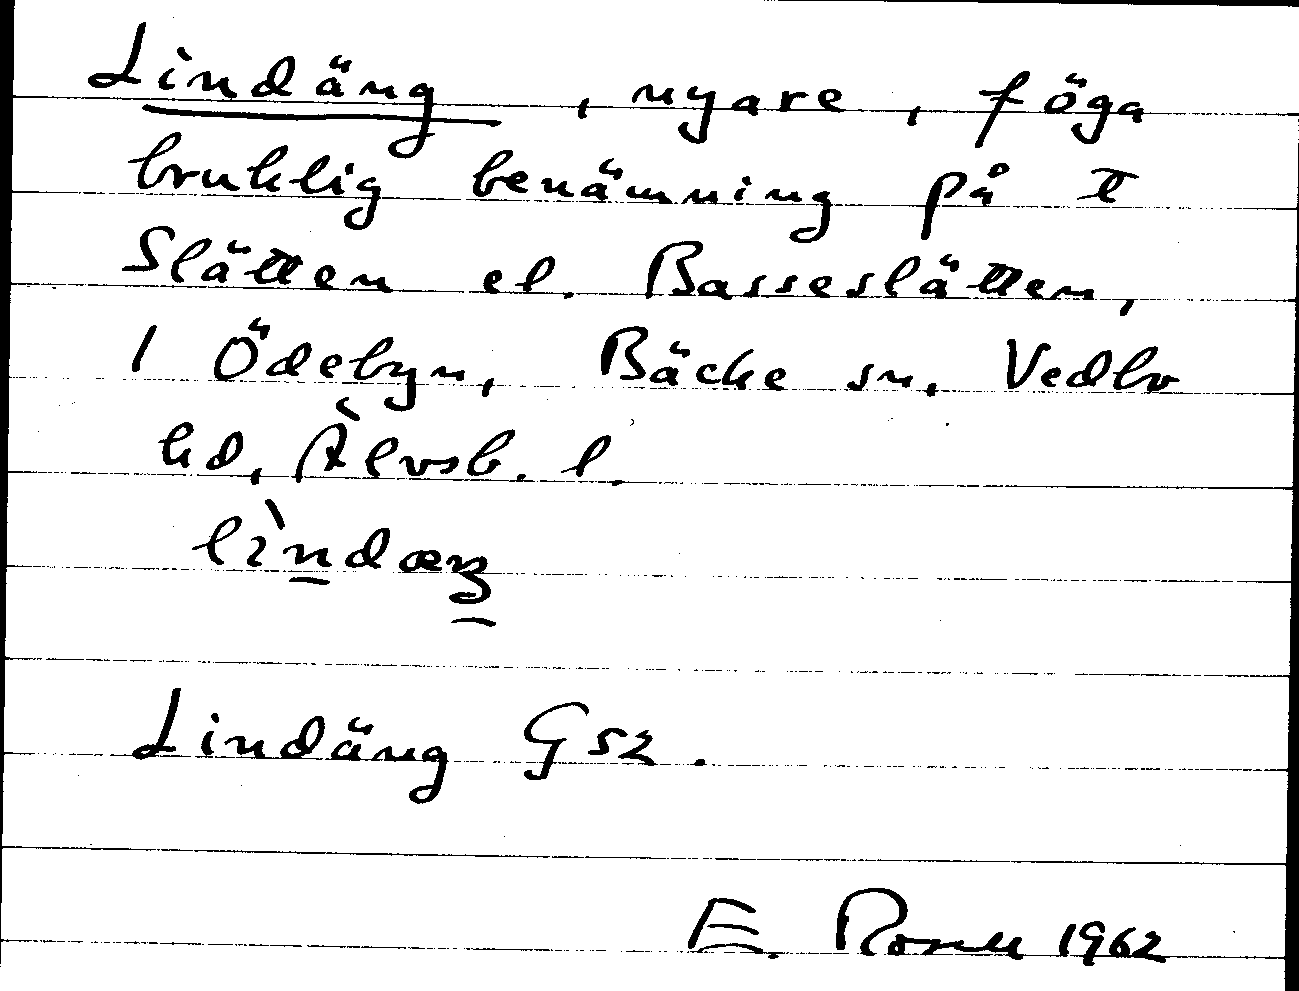 Lindäng, nyare, föga
bruklig benämning på t
Slätten el. Basseslätten,
1 Ödebyn, Bäcke sn, Vedbo
hd, Älvsb. l.
lìndæŋ
Lindäng GSZ.
E. 1962